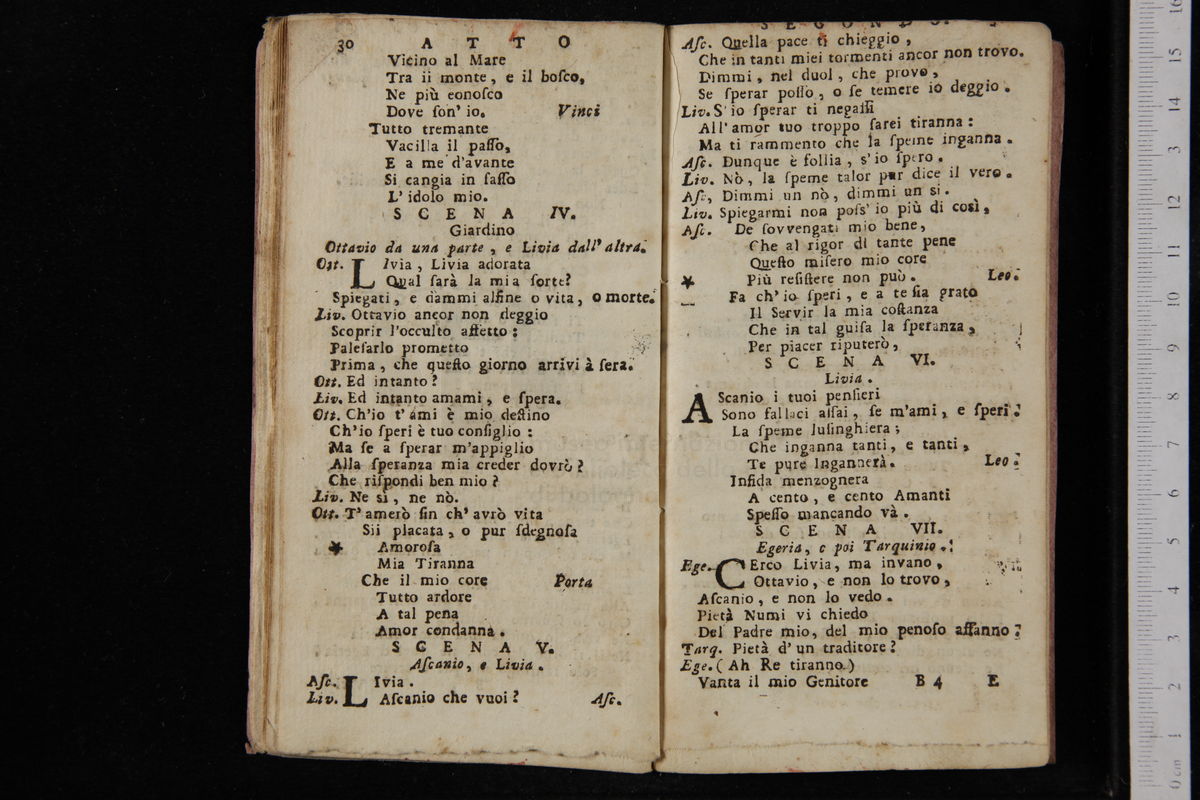 30 A T T O
Vicino al Mare
Tra ii monte, e il boſco,
Ne più eonoſco
Dove ſon' io. Vinci
Tutto tremante
Vacilla il paſſo,
E a me d'avante
Si cangia in ſaſſo
L' idolo mio.
S C E N A IV.
Giardino
Ottavio da una parte, e Livia dall' altra.
Ott. LIvia, Livia adorata
Qual ſarà la mia ſorte?
Spiegati, e dammi alfine o vita, o morte.
Liv. Ottavio ancor non deggio
Scoprir l'occulto affetto:
Paleſarlo prometto
Prima, che queſto giorno arrivi à ſera.
Ott. Ed intanto?
Liv. Ed intanto amami, e ſpera.
Ott. Ch'io t' ami è mio deſtino
Ch'io ſperi è tuo conſiglio:
Ma ſe a ſperar m'appiglio
Alla ſperanza mia creder dovrò?
Che riſpondi ben mio?
Liv. Ne sì, ne nò.
Ott. T' amerò ſin ch' avrò vita
Sii placata, o pur ſdegnoſa
* Amoroſa
Mia Tiranna
Che il mio core Porta
Tutto ardore
A tal pena
Amor condanna.
S C E N A V.
Aſcanio, e Livia.
Aſc. LIvia.
Liv. Aſcanio che vuoi? Aſc.
S E C O N D O.
Aſc. Quella pace ti chieggio,
Che in tanti miei tormenti ancor non trovo.
Dimmi, nel duol, che provo,
Se ſperar poſſo, o ſe temere io deggio.
Liv. S' io ſperar ti negaſſi
All' amor tuo troppo ſarei tiranna:
Ma ti rammento che la ſpeme inganna.
Aſc. Dunque è follia, s' io ſpero.
Liv. Nò, la ſpeme talor pur dice il vero.
Aſc, Dimmi un nò, dimmi un si.
Liv. Spiegarmi non poſs' io più di così,
Aſc. De ſovvengati mio bene,
Che al rigor di tante pene
Queſto miſero mio core
* Più reſiſtere non può. Leo.
Fa ch' io ſperi, e a te ſia grato
Il Servir la mia coſtanza
Che in tal guiſa la ſperanza,
Per piacer riputerò,
S C E N A VI.
Livia.
AScanio i tuoi penſieri
Sono fallaci aſſai, ſe m'ami, e ſperi.
La ſpeme luſinghiera;
Che inganna tanti, e tanti,
Te pure Ingannerà. Leo.
Infida menzognera
A cento, e cento Amanti
Speſſo mancando và.
S C E N A VII.
Egeria, e poi Tarquinio.
Ege. CErco Livia, ma invano,
Ottavio, e non lo trovo,
Aſcanio, e non lo vedo.
Pietà Numi vi chiedo
Del Padre mio, del mio penoſo affanno?
Tarq. Pietà d' un traditore?
Ege. (Ah Re tiranno.)
Vanta il mio Genitore B 4 E